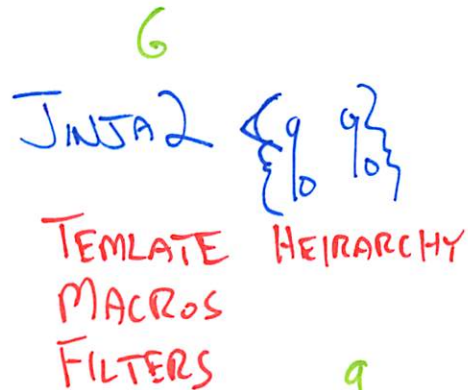 6
JINJA2 {% %}
TEMLATE HEIRARCHY
MACROS
FILTERS
9